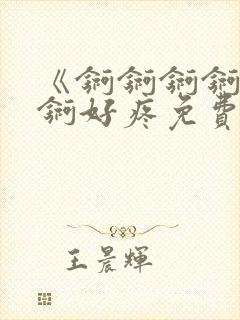 《锕锕锕锕
锕好疼免費
王晨輝